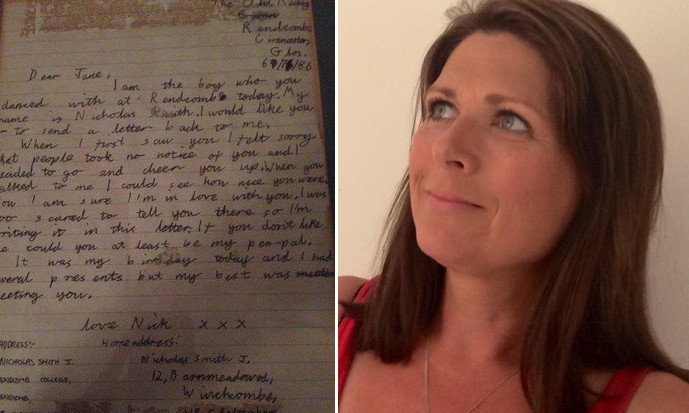 The Old
Rendcomb,
Cirencester,
Glos.
/86
Dear Jane,
I am the boy who you
danced with at Rendcomb today. My
name is Nicholas Smith. I would like you
to send a letter back to me.
When I first saw you I felt sorry
that people took no notice of you and I
decided to go and cheer you up. When you
talked to me I could see how nice you were.
Now I am sure I'm in love with you. I was
too scared to tell you there so I'm
writing it in this letter. If you don't like
me could you at least be my pen-pal.
It was my birthday today and I had
several presents but my best was
meeting you.
love Nick x x x
ADDRESS:- Home address:
NICHOLAS SMITH J. Nicholas Smith J.
RENDCOMB COLLEGE, 12, Barnmeadowed,
RENDCOMB, Winchcombe,